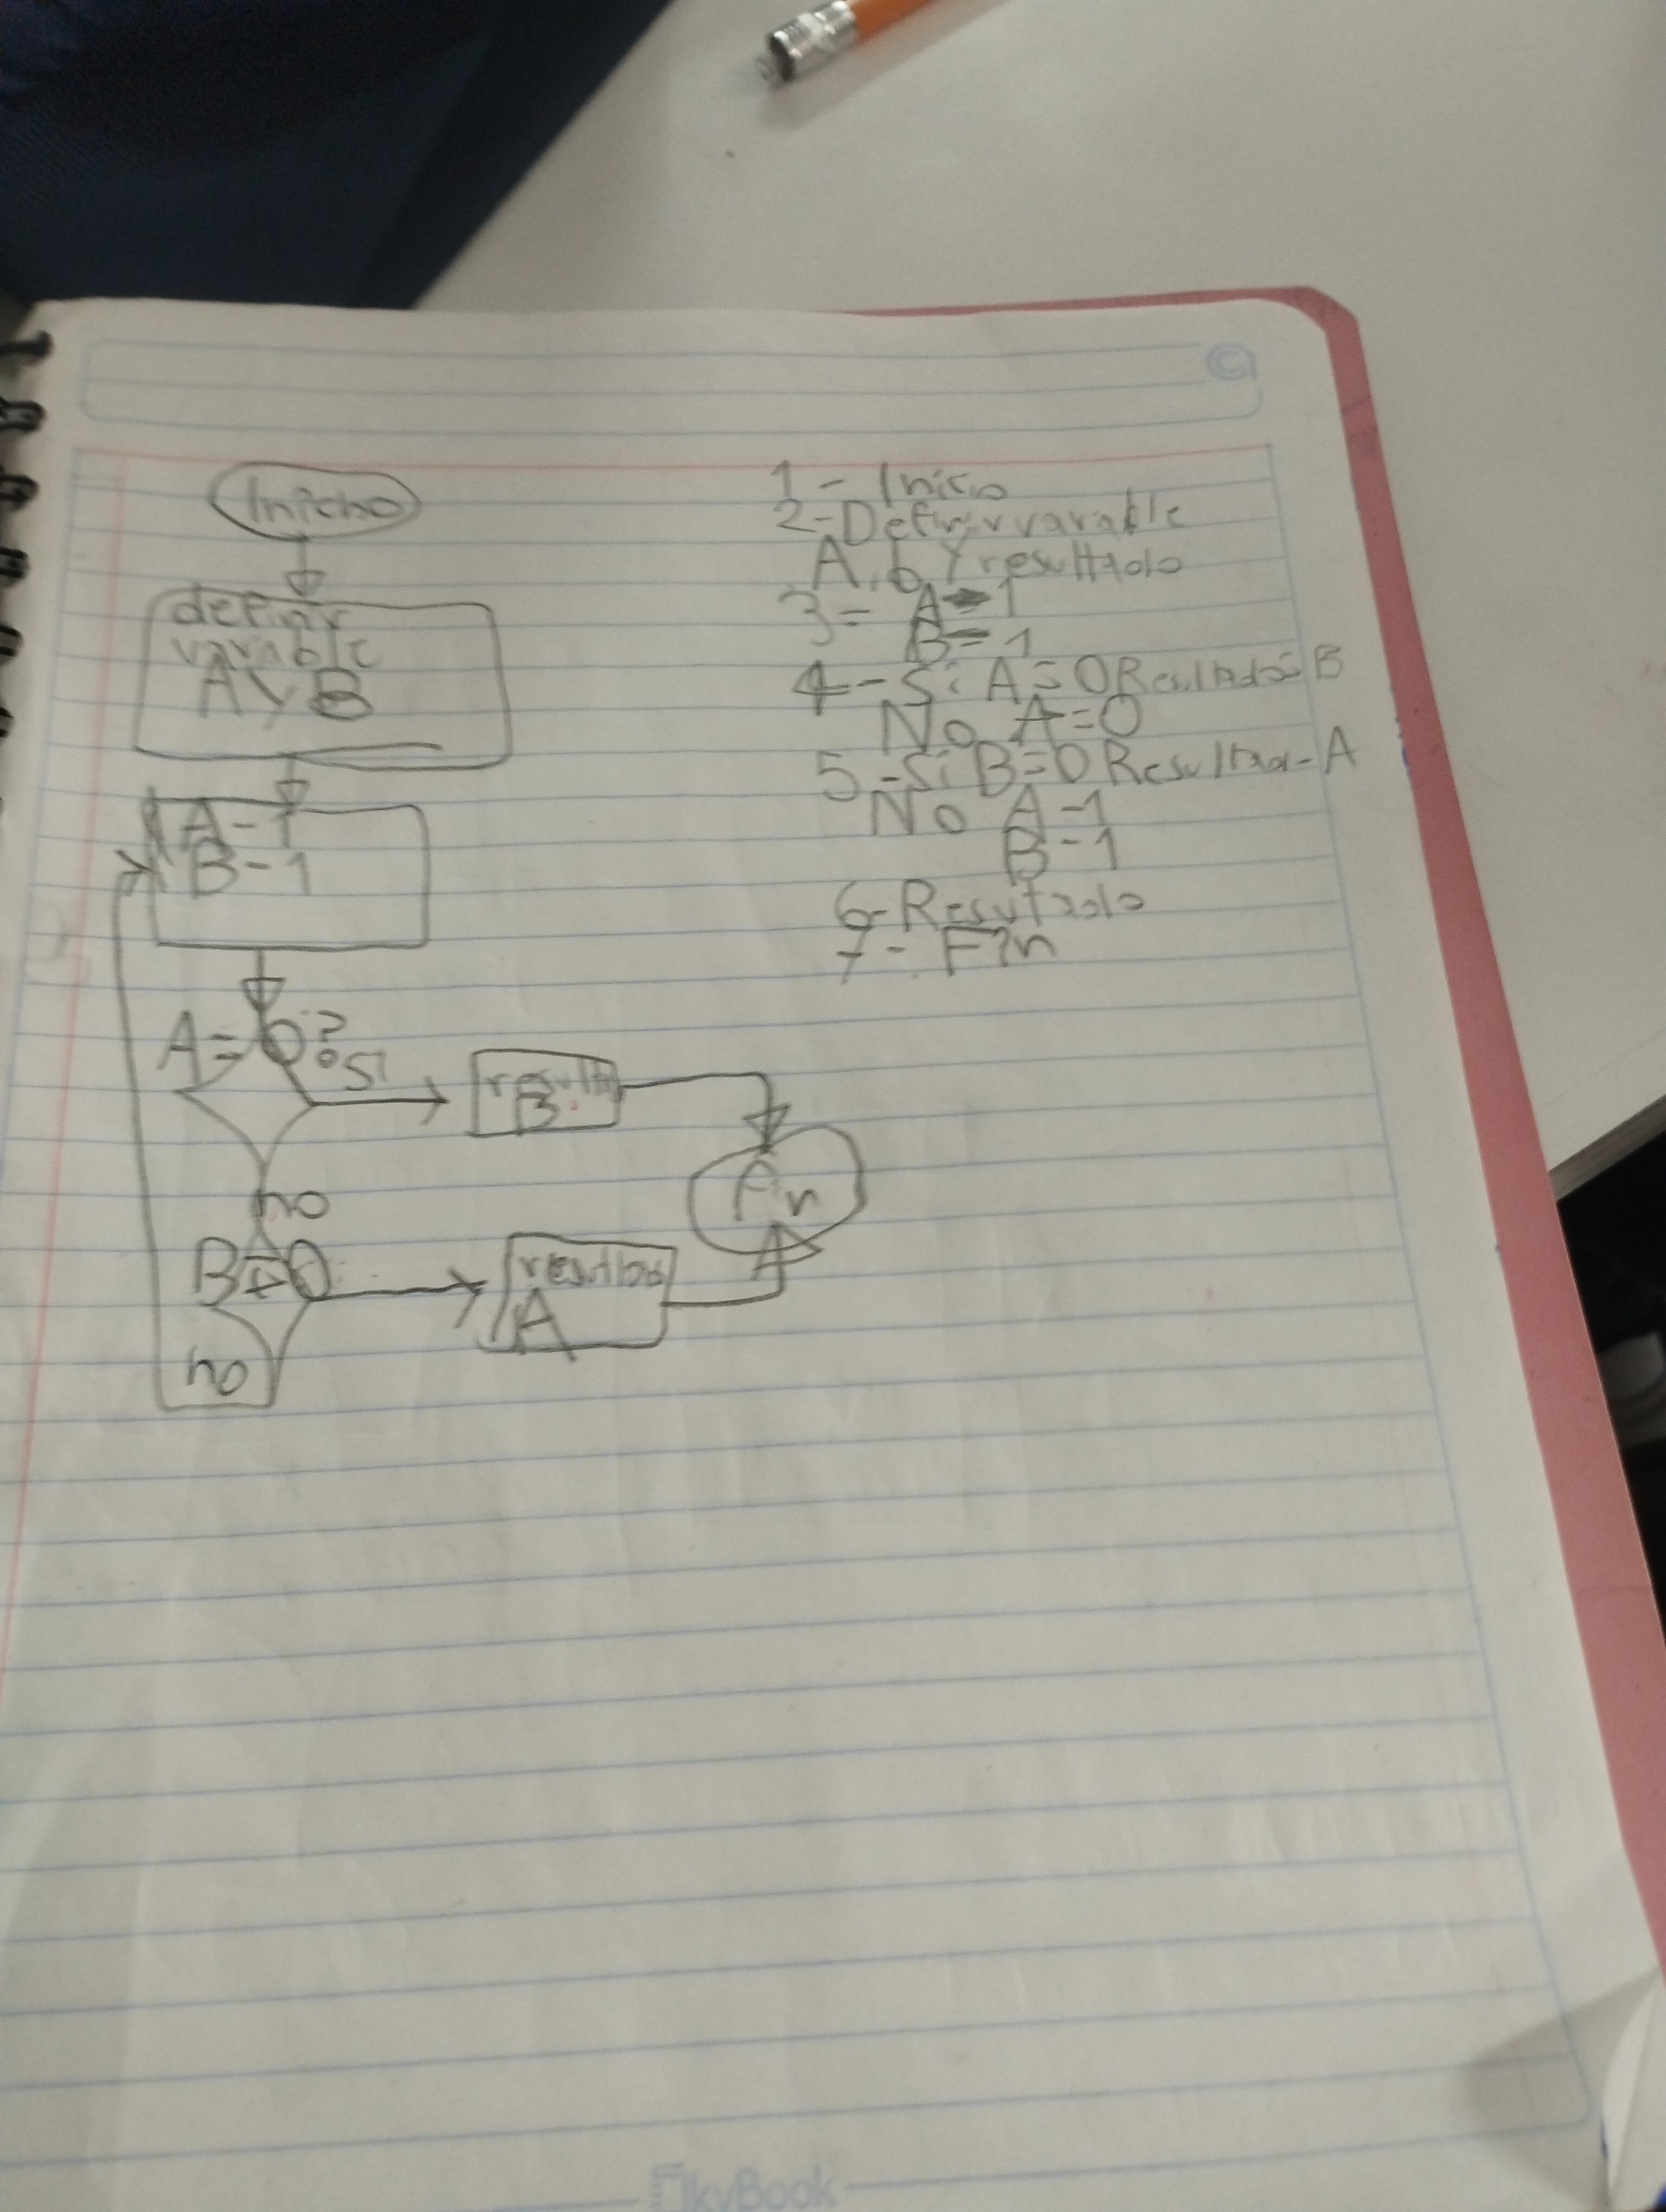 Inicho
definir
variable
A y B
A-1
B-1
A=0?
si
B
no
B=0
A
no
Fin
1- Inicio
2-Definir varable
A, b Y resultado
3= A-1
B-1
4-Si A=0 Resultado=B
No A=0
5-Si B=0 Resultado-A
No A-1
B-1
6-Resultado
7- Fin